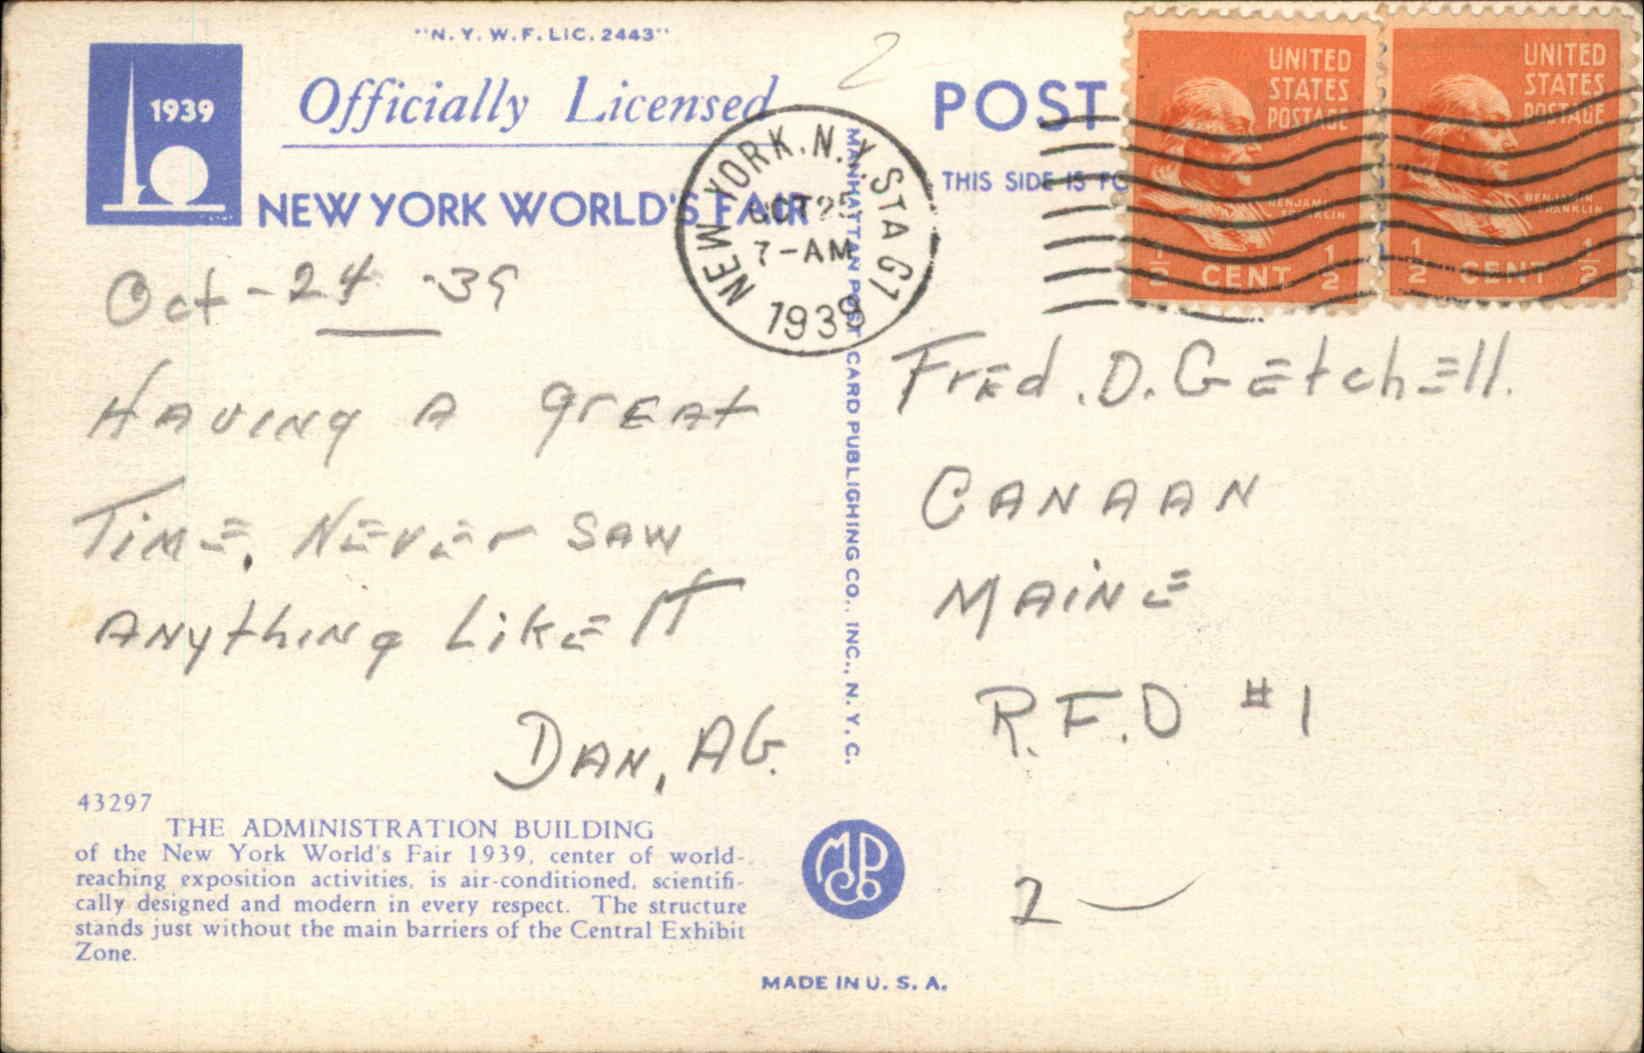 "N. Y. W. F. LIC. 2443"
1939
Officially Licensed
NEW YORK WORLD'S FAIR
2
POST
THIS SIDE IS FO
NEW YORK, N.Y. STA G1
OCT 25
7-AM
1939
UNITED
STATES
POSTAGE
BENJAMIN
FRANKLIN
1/2 CENT 1/2
UNITED
STATES
POSTAGE
BENJAMIN
FRANKLIN
1/2 CENT 1/2
MANHATTAN POST CARD PUBLISHING CO., INC., N. Y. C.
Oct - 24 - 39
HAVING A GREAT
TIME, NEVER SAW
ANYthING LIKE IT
DAN, AG.
FrED. D. GEtchEll.
CANAAN
MAiNE
R.F.D #1
2 —
43297
THE ADMINISTRATION BUILDING
of the New York World's Fair 1939, center of world-
reaching exposition activities, is air-conditioned, scientifi-
cally designed and modern in every respect. The structure
stands just without the main barriers of the Central Exhibit
Zone.
MPCCo
MADE IN U. S. A.